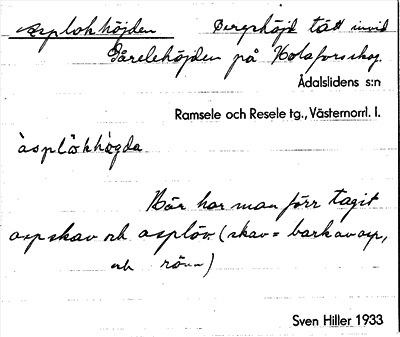 Asplokhöjden Bergshöjd tätt invid
Gårelehöjden på Holaforsskog.
Ådalslidens s:n
Ramsele och Resele tg., Västernorrl. l.
àsplö̀khö̀gda
Här har man förr tagit
aspskav och asplöv. (skav = bark av asp,
och rönn)
Sven Hiller 1933